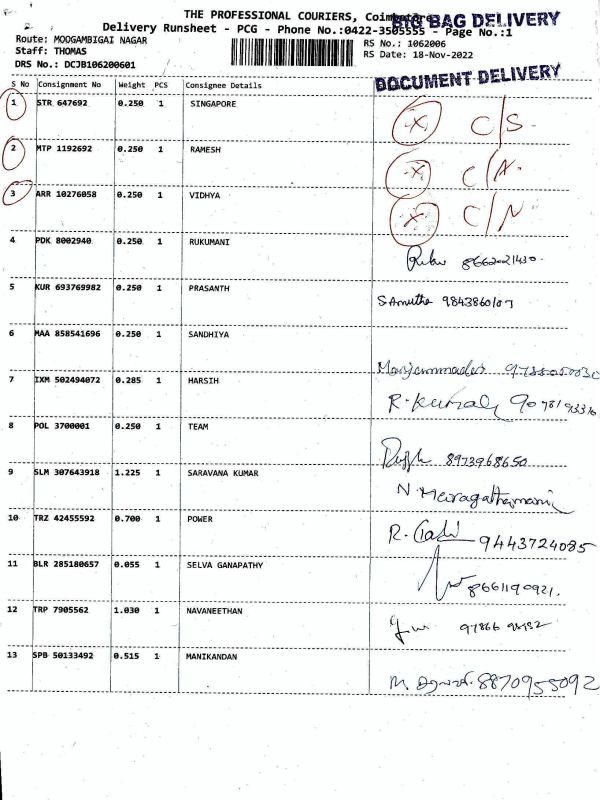 THE PROFESSIONAL COURIERS, Coimbatore
BIG BAG DELIVERY
Delivery Runsheet - PCG - Phone No.:0422-3505555 - Page No.:1
Route: MOOGAMBIGAI NAGAR
RS No.: 1062006
Staff: THOMAS
RS Date: 18-Nov-2022
DRS No.: DCJB106200601
DOCUMENT DELIVERY
S No Consignment No Weight PCS Consignee Details
1 STR 647692 0.250 1 SINGAPORE
X C/S
2 MTP 1192692 0.250 1 RAMESH
X C/A
3 ARR 10276058 0.250 1 VIDHYA
X C/N
4 PDK 8002940 0.250 1 RUKUMANI
8662021430
5 KUR 693769982 0.250 1 PRASANTH
S Amutha 9843860107
6 MAA 858541696 0.250 1 SANDHIYA
7 IXM 502494072 0.285 1 HARSIH
R. Kumar
8 POL 3700001 0.250 1 TEAM
8973968650
9 SLM 307643918 1.225 1 SARAVANA KUMAR
N. Maragathamani
10 TRZ 42455592 0.700 1 POWER
R. 9443724085
11 BLR 285180657 0.055 1 SELVA GANAPATHY
8661190921.
12 TRP 7905562 1.030 1 NAVANEETHAN
13 SPB 50133492 0.515 1 MANIKANDAN
M. 8870955092